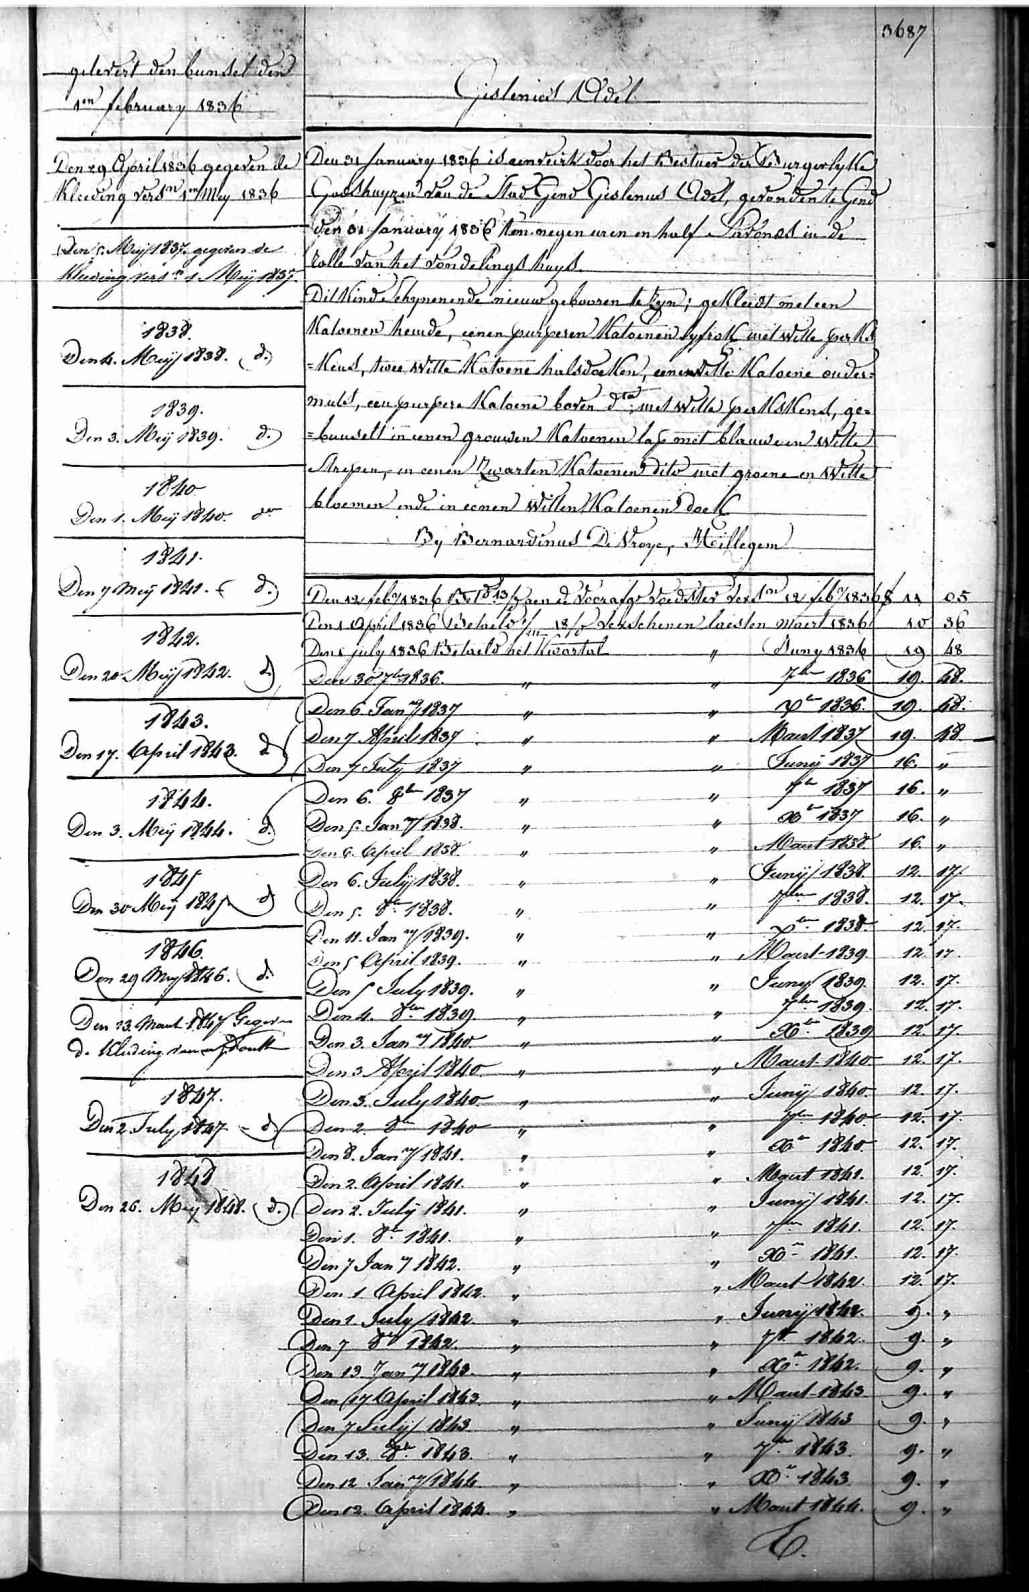 3687
gelevert den bunsel den
1en february 1836
Gislenus Udel.
Den 29 April 1836 gegeven de
Kleeding versn 1en Mey 1836
Den 5 Meij 1837 gegeven de
Kleeding versn 1 Meij 1837.
1838.
Den 4. Meij 1838. d.)
1839.
Den 3. Meij 1839. d.)
1840
Den 1. Meij 1840. do
1841.
Den 7 Meij 1841. ( d.)
1842.
Den 20 Meij 1842. d.)
1843.
Den 17. April 1843. d)
1844.
Den 3. Meij 1844. d.
1845
Den 30 Meij 1845 d)
1846.
Den 29 Meij 1846. (d.
Den 23. Maert 1847 Gegev
de Kleeding van
1847.
Den 2. July 1847. d)
1848
Den 26. Mey 1848. (d.)
Den 31 January 1836 is aenveirt door het Bestuer der Burgerlyke
Godshuyzen van de Stad Gend Gislenus Udel, gevonden te Gend
den 31 January 1836 ten negen uren en half s'avonds in de
rolle van het vondelingshuys.
Dit Kind schynende nieuw gebooren te zyn; gekleedt met een
Katoenen hemde, eenen purperen Katoenen lyfrok met witte perks
=Kens, twee witte Katoene halsdoeken, eene witte Katoene onder=
muts, een purpere Katoene boven dto; met witte perkskens, ge=
=bunselt in eenen grouwen Katoenen lap met blauwe en witte
strepen, in eenen zwarten Katoenen dito met groene en witte
bloemen ende in eenen witten Katoenen doek
By Bernardinus De Vroye, Hillegem
Den 12 feby 1836 aen de voorafge voedster versn 12 feby 1836 f 11 05
Den 1 April 1836 Betaeld verschenen laesten maert 1836 10 36
Den 1 July 1836 Betaeld het Kwartal " Juny 1836 19 48
Den 30 7ber 1836 " " 7ber 1836 19. 48.
Den 6. Jany 1837 " " Xber 1836. 19. 48.
Den 7 April 1837 " " Maert 1837 19. 48
Den 7 July 1837 " " Junij 1837 16. "
Den 6. 8ber 1837 " " 7ber 1837 16. "
Den 5. Jany 1838. " " Xber 1837 16. "
Den 6. April 1838 " " Maert 1838. 16. "
Den 6. July 1838. " " Junij 1838. 12. 17.
Den 5. 8ber 1838. " " 7ber 1838. 12. 17.
Den 11. Jany 1839. " " Xber 1838 12. 17.
Den 5 April 1839. " " Maert 1839. 12. 17.
Den 5 July 1839. " " Juny 1839. 12. 17.
Den 4. 8ber 1839. " " 7ber 1839. 12. 17.
Den 3. Jany 1840 " " Xber 1839 12. 17.
Den 3 April 1840 " " Maert 1840 12. 17.
Den 3. July 1840. " " Junij 1840. 12. 17.
Den 2. 8ber 1840 " " 7ber 1840 12. 17
Den 8. Jany 1841. " " Xber 1840. 12. 17.
Den 2. April 1841. " " Maert 1841. 12. 17.
Den 2. July 1841. " " Junij 1841. 12. 17.
Den 1. 8ber 1841. " " 7ber 1841. 12. 17.
Den 7 Jany 1842. " " Xber 1841. 12. 17.
Den 1. April 1842. " " Maert 1842. 12. 17.
Den 1. July 1842 " " Junij 1842. 9. "
Den 7 8ber 1842. " " 7ber 1842. 9. "
Den 13 Jany 1843 " " Xber 1842. 9. "
Den 17 April 1843 " " Maert 1843 9. "
Den 7 July 1843 " " Junij 1843 9. "
Den 13. 8ber 1843. " " 7ber 1843. 9. "
Den 12 Jany 1844 " " Xber 1843 9. "
Den 12. April 1844. " " Maert 1844. 9. "